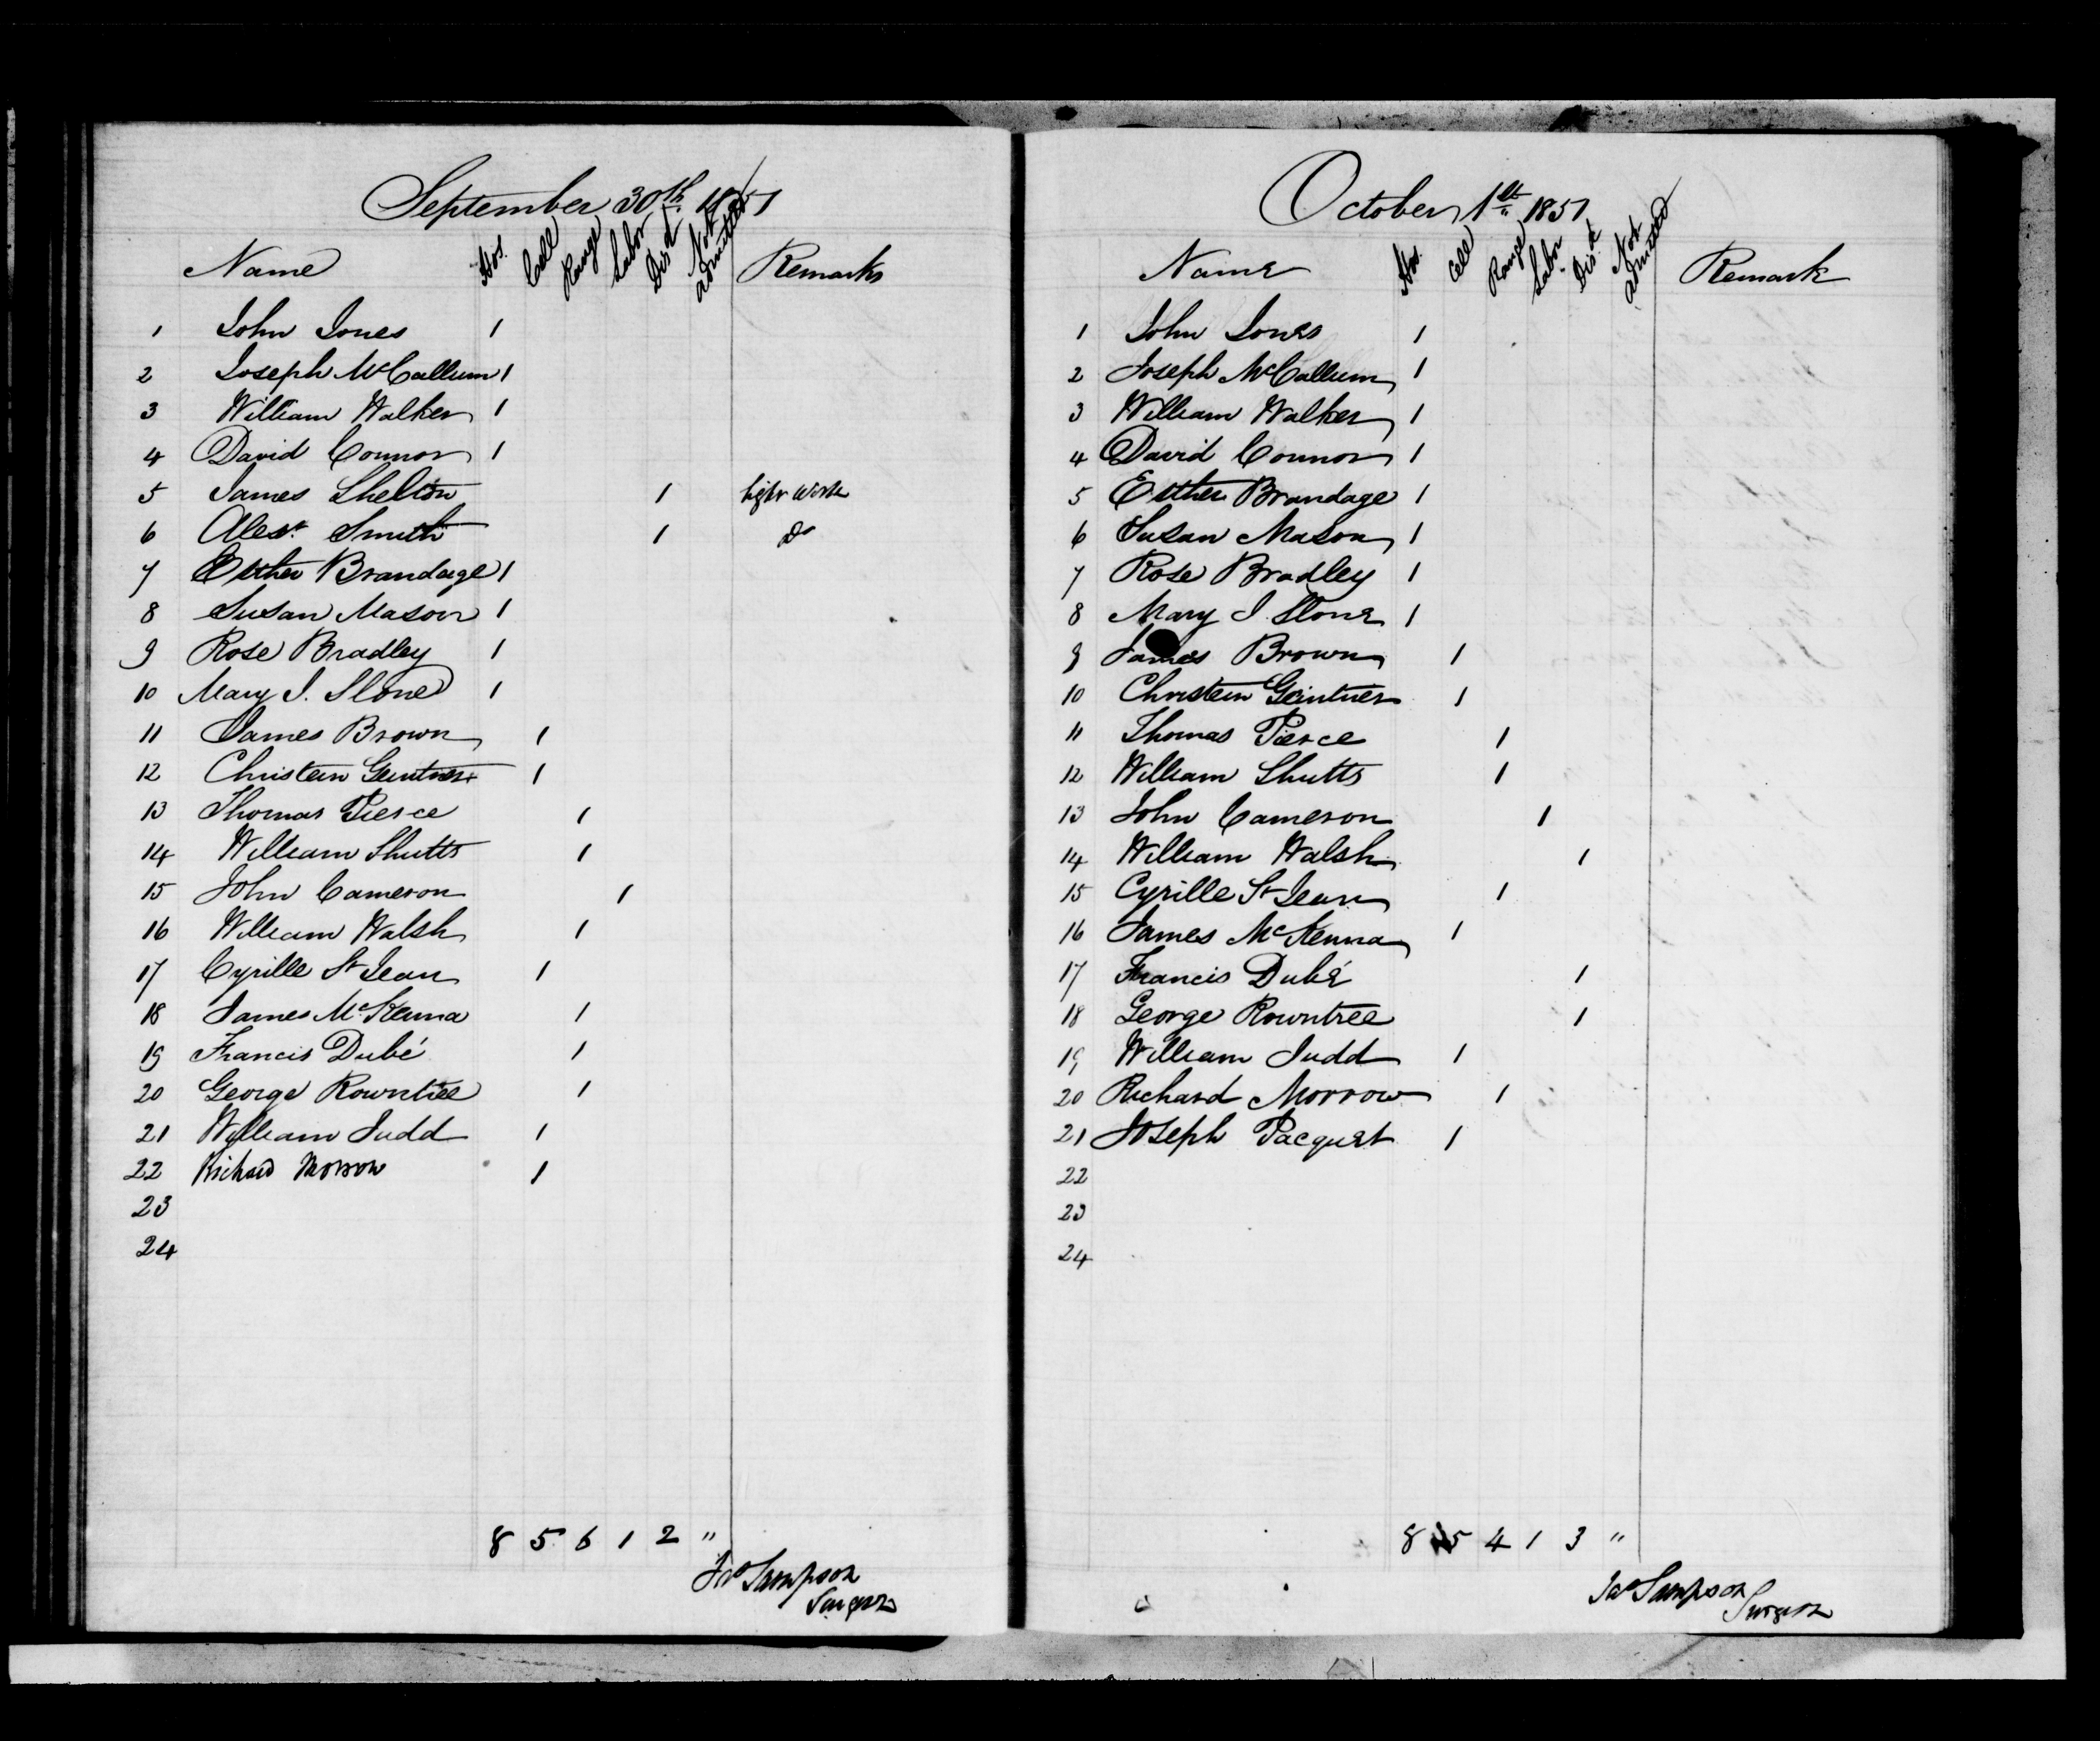 September 30th 1851
Name Hos. Cell Range Labor Disd Not admitted Remarks
1 John Jones 1
2 Joseph McCallum 1
3 William Walker 1
4 David Connor 1
5 James Shelton 1 light work
6 Alexr. Smith 1 Do
7 Esther Brandage 1
8 Susan Mason 1
9 Rose Bradley 1
10 Mary J. Stone 1
11 James Brown 1
12 Christein Geintner 1
13 Thomas Pierce 1
14 William Shutts 1
15 John Cameron 1
16 William Walsh 1
17 Cyrille St Jean 1
18 James McKenna 1
19 Francis Dubé 1
20 George Rowntree 1
21 William Judd 1
22 Richard Morrow 1
23
24
8 5 6 1 2 "
Jas Sampson
Surgeon
October 1st 1851
Name Hos. Cell Range Labor Disd Not admitted Remark
1 John Jones 1
2 Joseph McCallum 1
3 William Walker 1
4 David Connor 1
5 Esther Brandage 1
6 Susan Mason 1
7 Rose Bradley 1
8 Mary J. Stone 1
9 James Brown 1
10 Christein Geintner 1
11 Thomas Pierce 1
12 William Shutts 1
13 John Cameron 1
14 William Walsh 1
15 Cyrille St Jean 1
16 James McKenna 1
17 Francis Dubé 1
18 George Rowntree 1
19 William Judd 1
20 Richard Morrow 1
21 Joseph Pacquet 1
22
23
24
8 5 4 1 3 "
Jas Sampson
Surgeon